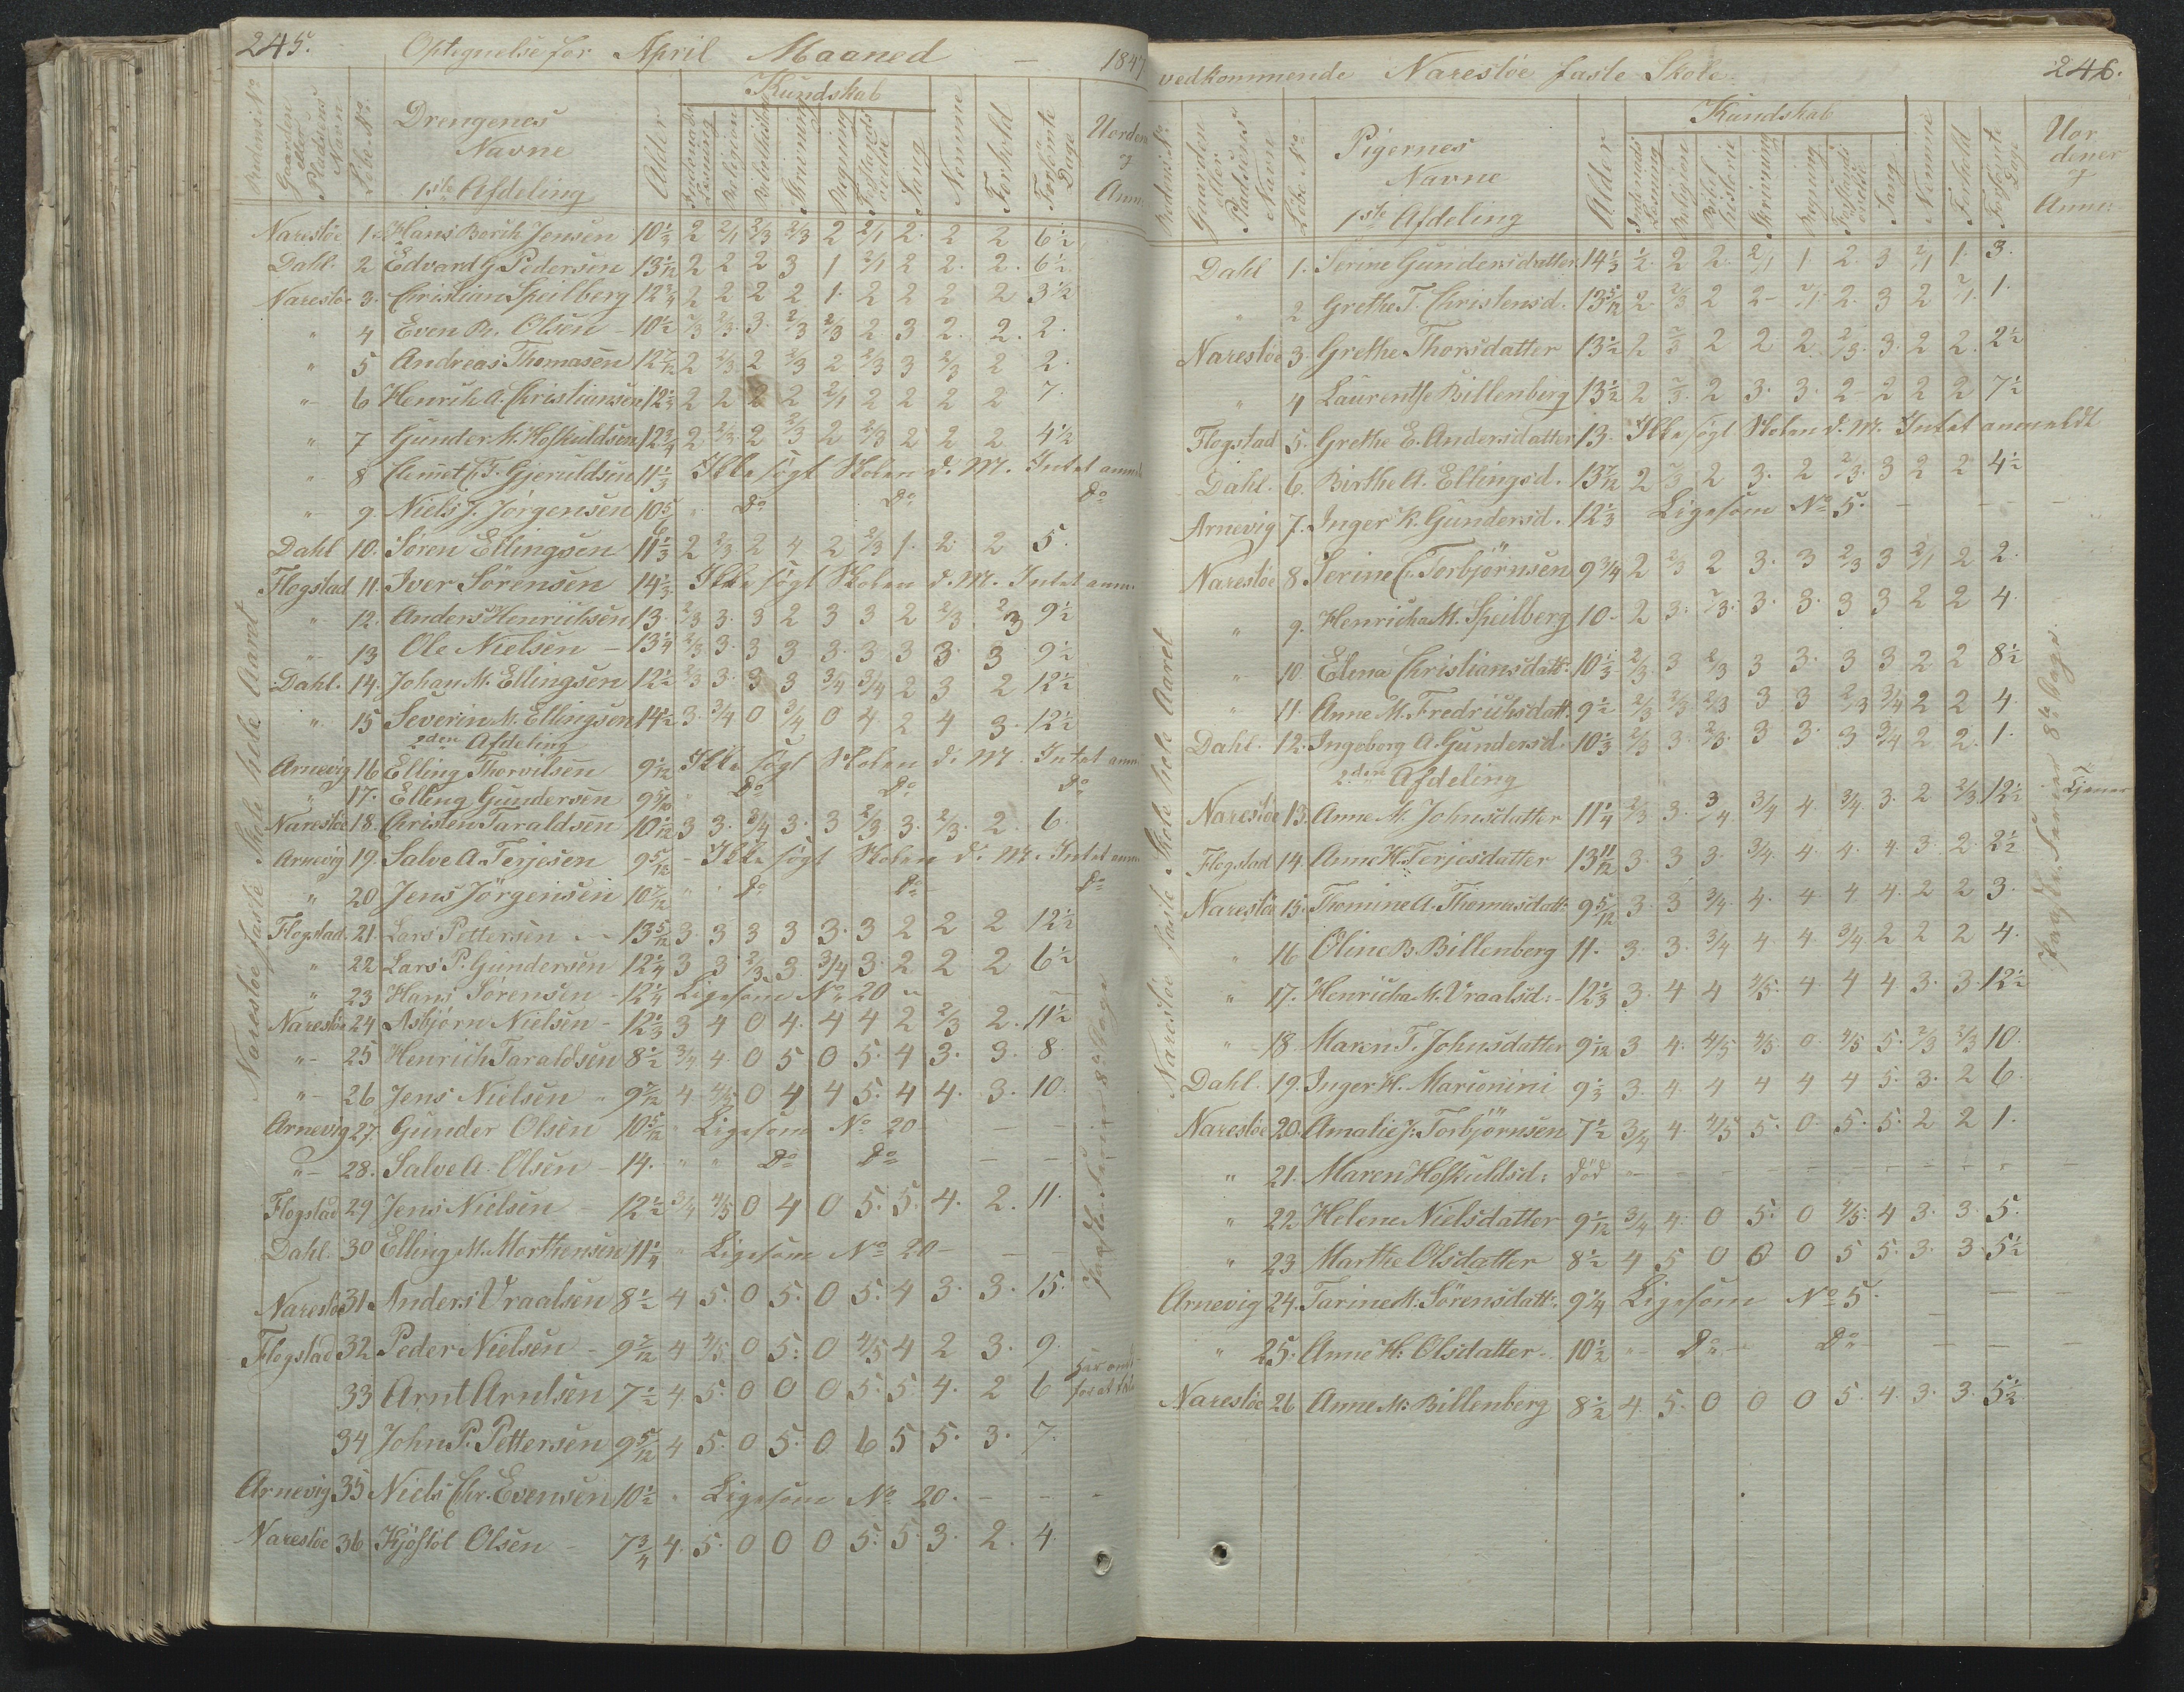 245.
Optegnelse for April Maaned – 1847
Gaarden eller Pladsens Navn
Löbe No.
Drengenes Navne
1ste Afdeling
Alder
Kundskab
Religion
Skrivning
Regning
Sang
Nemme
Forhold
Forsömte Dage
Narestöe faste Skole hele Aaret
Narestöe 1. Hans Berth Jensen 10 1/3 2 2/1 2/3 2/3 2 2/1 2 2 2 6 1/2
Dahl. 2 Edvard G. Pedersen 13 1/12 2 2 2 3 1 2/1 2 2. 2. 6 1/2
Narestöe 3. Christian Speilberg 12 3/4 2 2 2 2 1. 2 2 2 2 3 1/2
" 4 Even Br. Olsen – 10 1/2 2/3 2/3. 3. 2/3 2/3 2 3 2. 2. 2.
" 5 Andreas Thomasen 12 7/12 2 2/3 2 2/3 2 2/3 3 2/3 2 2.
" 6 Henrik A. Christiansen 12 1/3 2 2 2 2 2/1 2 2 2 2 7.
" 7 Gunder K. Hoskuldsen 12 3/4 2 2/3 2 2/3 2 2/3 2 2 2 4 1/2
" 8 Clemet C. F. Gjeruldsen 11 1/3 Ikke sögt Skolen d. M. Intet anm
" 9. Niels J. Jörgensen 10 5/6 " Do Do Do
Dahl 10. Sören Ellingsen 11 1/3 2 2/3 2 4 2 2/3 1. 2. 2 5.
Flogstad 11. Iver Sörensen 14 1/3. Ikke sögt Skolen d. M. Intet anm.
" 12. Anders Henrichsen 13. 2/3 3. 3 2 3 3 2 2/3. 2/3 9 1/2
" 13 Ole Nielsen – 13 1/4 2/3 3. 3 3 3. 3 3 3. 3 9 1/2
Dahl. 14. Johan M. Ellingsen 12 1/2 2/3 3. 3 3 3/4 3/4 2 3 2 12 1/2
" 15 Severin M. Ellingsen 14 1/2 3. 3/4 0 3/4 0 4. 2 4 3. 12 1/2
2den Afdeling
Arnevig 16 Elling Thorvildsen 9 1/12 Ikke sögt Skolen d. M. Intet anm
" 17. Elling Gundersen 9 5/10 " Do Do Do
Narestöe 18. Christen Taraldsen 10 1/12 3 3. 3/4 3. 3 2/3 3. 2/3. 2. 6.
Arnevig 19. Salve A. Terjesen 9 5/12 – Ikke sögt Skolen d. M. Intet anm
" 20 Jens Jörgensen 10 7/12 " " Do Do Do
Flogstad. 21. Lars Pettersen – 13 5/12 3. 3 3 3 3. 3 2 2 2 12 1/2
" 22 Lars P. Gundersen 12 1/4 3 3 2/3 3. 3/4 3. 2 2 2 6 1/2
" 23 Hans Sörensen – 12 1/4 Ligesom No 20 –
Narestöe 24 Asbjörn Nielsen – 12 1/3 3 4 0 4. 4 4 2 2/3 2. 11 1/2
" 25 Henrich Taraldsen 8 1/2 3/4 4. 0 5 0 5. 4 3. 3. 8.
" 26 Jens Nielsen – 9 7/12 4 4/5 0 4 4 5. 4 4. 3. 10.
Arnevig 27. Gunder Olsen 10 5/12 " Ligesom No 20 – – –
" 28. Salve A. Olsen – 14. " " Do Do – –
Flogstad 29 Jens Nielsen – 12 1/2 3/4 4/5 0 4 0 5. 5. 4. 2. 11.
Dahl. 30 Elling M. Morthensen 11 1/4 " Ligesom No 20 – – –
Narestöe 31. Anders Vraalsen 8 1/2 4 5. 0 5. 0 5. 4 3. 3. 15.
Flogstad 32 Peder Nielsen – 9 7/12 4 4/5 0 5. 0 4/5 4 2 3. 9.
33 Arnt Arntsen 7 1/2 4 5. 0 0 0 5. 5 4. 2 6
34 John P. Pettersen 9 5/12 4 5. 0 5. 0 6 5 5. 3. 7.
Arnevig 35 Niels Chr. Evensen 10 1/2 " Ligesom No 20. – – –
Narestöe 36 Kjöstöl Olsen – 7 3/4 4. 5. 0 0 0 5. 5 3. 2. 4.
vedkommende Narestöe faste Skole 246.
Gaarden eller Pladsens Navn
Löbe No
Pigernes Navne
1ste Afdeling
Alder
Kundskab
Religion
Bibelhistorie
Skrivning
Regning
Sang
Nemme
Forhold
Forsömte Dage
Uordener og Anm:
Narestöe faste Skole hele Aaret
Dahl 1. Serine Gundersdatter 14 1/3 1/2. 2 2. 2/1 1 2. 3 2/1 1. 3.
" 2 Grethe T. Christensd. 13 5/12 2. 2/3 2 2– 2/1. 2. 3 2 2/1. 1.
Narestöe 3. Grethe Thorsdatter 13 1/2 2 2/3 2 2 2 2/3. 3. 2 2. 2 1/2
" 4 Laurentse Billenberg 13 1/2 2 2/3. 2 3. 3. 2– 2 2 2 7 1/2
Flogstad 5. Grethe E. Andersdatter 13. Ikke sögt Skolen d. M. Intet anmeldt
Dahl. 6. Birthe A. Ellingsd. 13 7/12 2 2/3 2 3. 2 2/3. 3 2 2 4 1/2
Arnevig 7. Inger K. Gundersd. 12 1/3 Ligesom No 5. – – –
Narestöe 8. Serine C. Torbjörnsen 9 3/4 2 2/3 2 3. 3 2/3 3 2/1 2 2.
" 9. Henricha M. Speilberg 10 – 2 3. 2/3. 3. 3. 3 3 2 2 4.
" 10. Elena Christiansdatt: 10 1/3 2/3. 3 2/3 3 3. 3 3 2 2 8 1/2
" 11. Anne M. Fredrichsdatt. 9 1/2 2/3 2/3 2/3 3 3 2/3 3/4 2 2 4.
Dahl. 12. Ingeborg A. Gundersd. 10 1/3 2/3 3. 2/3. 3 3. 3 3/4 2 2. 1.
2den Afdeling
Narestöe 13. Anne M. Johnsdatter 11 1/4 2/3 3. 3/4 3/4 4. 3/4. 3. 2 2/3. 12 1/2 tjener
Flogstad 14. Anne H. Terjesdatter 13 11/12 3. 3 3. 3/4 4. 4. 4. 3. 2. 2 1/2
Narestöe 15. Thomine A. Thomasdatt. 9 5/12 3. 3 3/4. 4. 4. 4 4. 2 2 3.
" 16 Oline B. Billenberg 11. 3. 3. 3/4 4. 4 3/4 2 2 2 4.
" 17. Henricha K. Vraalsd: – 12 1/3 3. 4 4 4/5. 4 4 4. 3. 3. 12 1/2
" 18. Maren T. Johnsdatter 9 1/12 3 4. 4/5 4/5 0 4/5 5. 2/3 2/3 10.
Dahl. 19. Inger H. Marionini 9 1/3 3. 4. 4 4 4 4 5. 3. 2 6.
Narestöe 20. Amalie J: Torbjörnsen 7 1/2 3/4 4. 4/5 5. 0 5. 5. 2 2 1.
" 21. Maren Hoskuldsd: död – – –
" 22. Helene Nielsdatter 9 1/12 3/4 4. 0 5. 0 4/5. 4 3. 3. 5.
" 23 Marthe Olsdatter 8 1/2 4 5 0 0 0 5 5. 3. 3. 5 1/2
Arnevig 24. Tarine M: Sörensdatt. 9 1/4 Ligesom No 5. – – –
" 25. Anne H: Olsdatter – 10 1/2 " Do Do – – –
Narestöe 26 Anne M: Billenberg 8 1/2 4. 5. 0 0 0 5. 4. 3. 3. 5 1/2